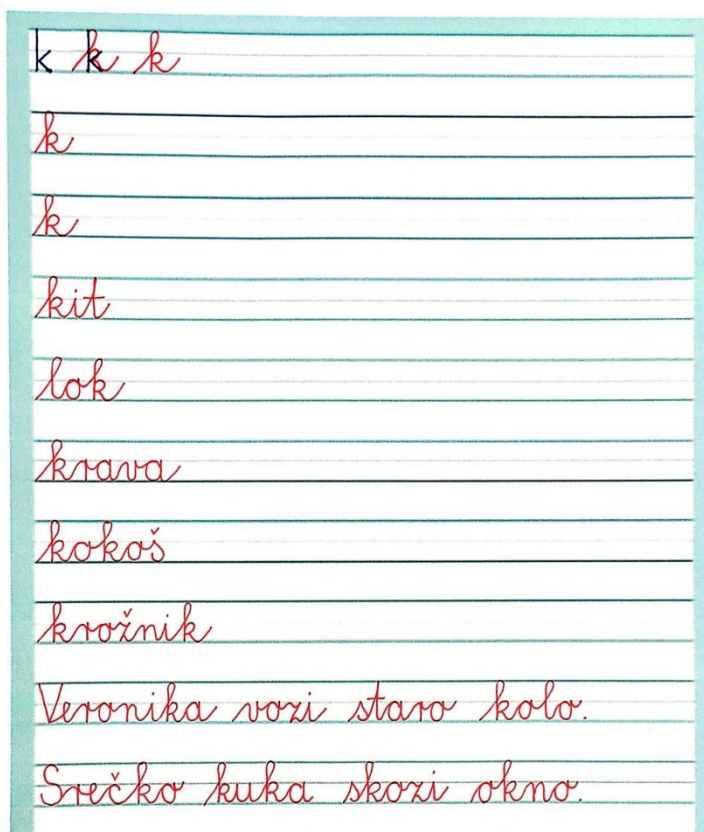 k k k
k
k
kit
lok
krava
kokoš
krožnik
Veronika vozi staro kolo.
Srečko kuka skozi okno.